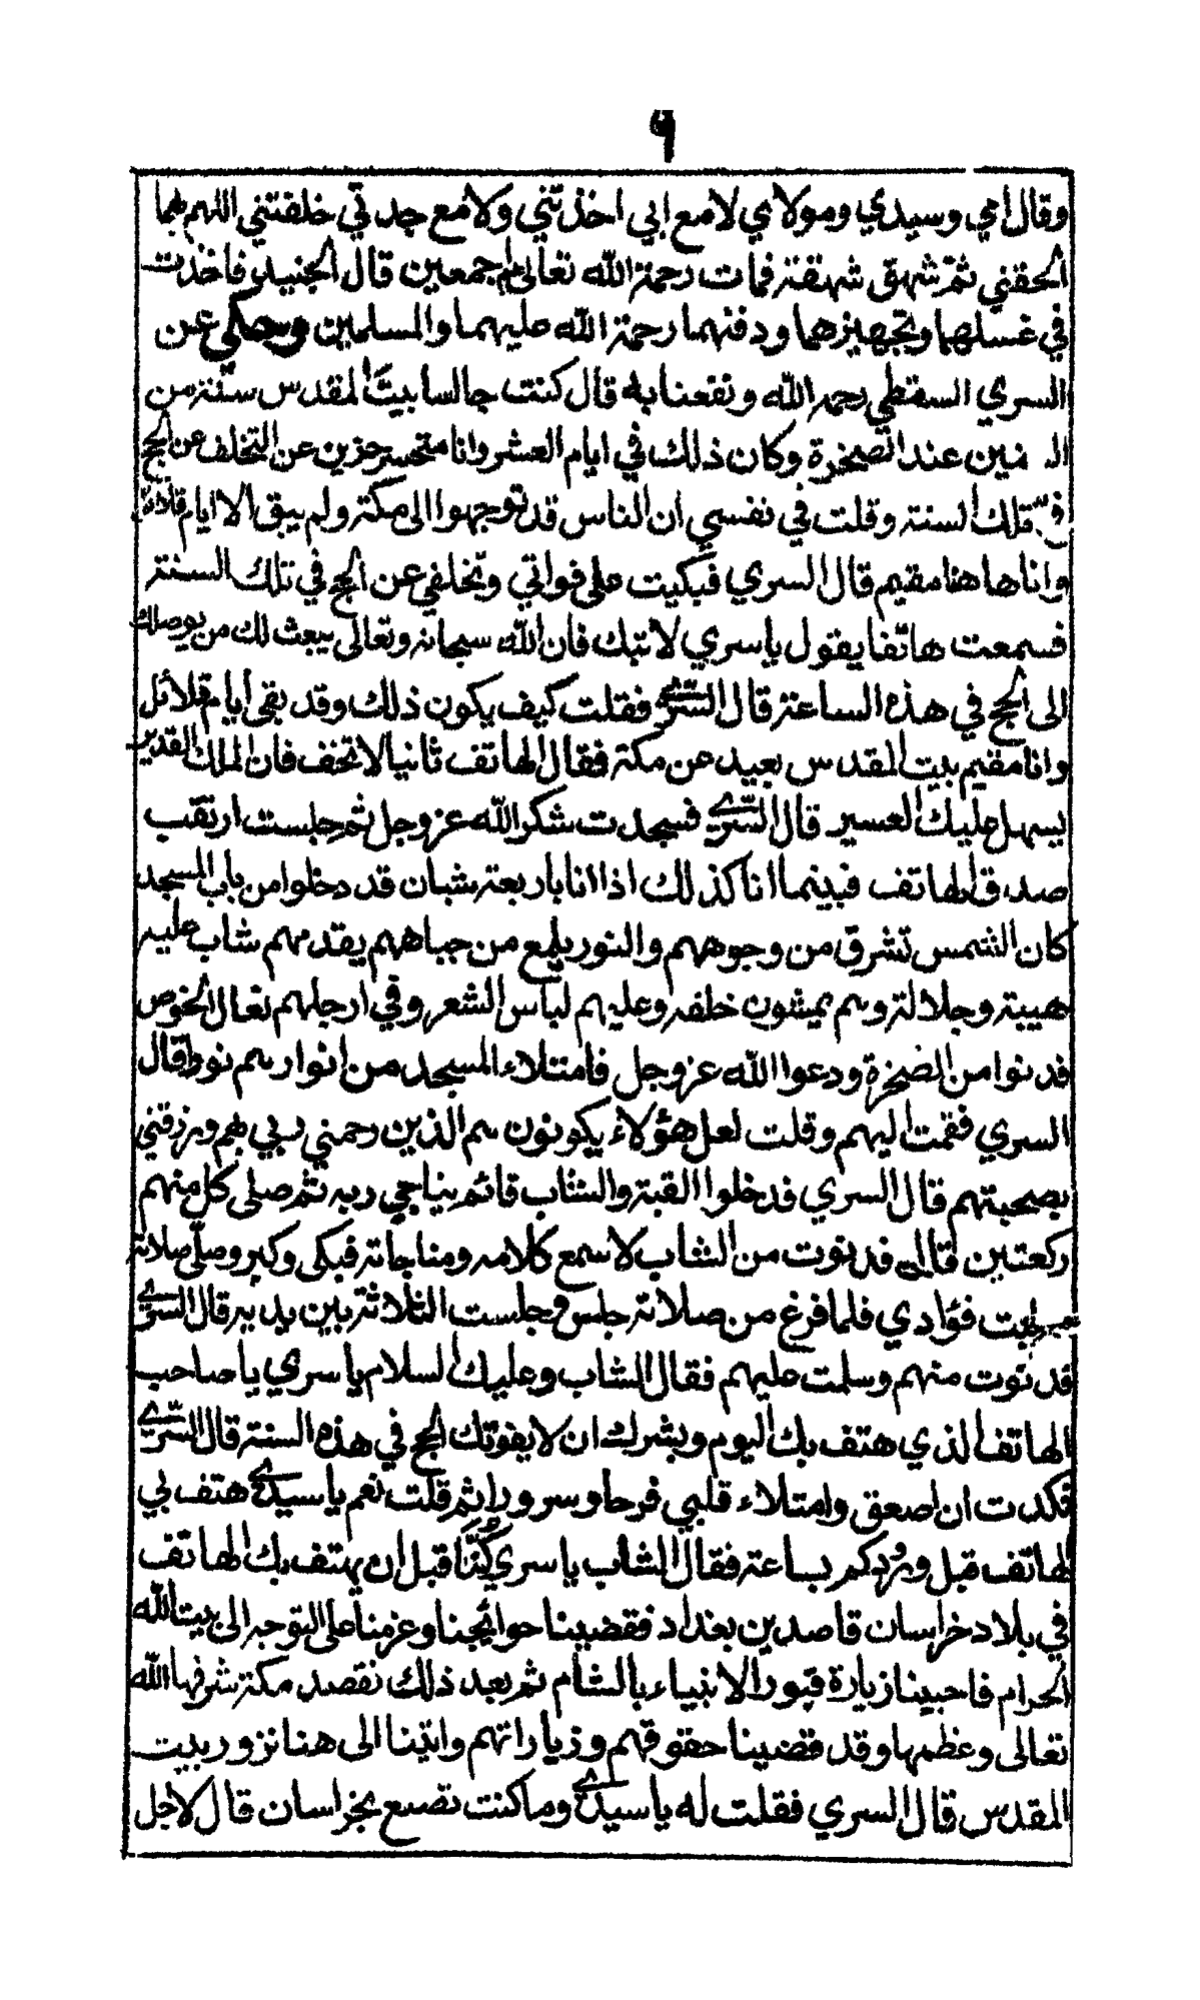 ٩
وقال إلهي وسيدي ومولاي لا مع ابي اخذتني ولا مع جدتي خلفتني اللهم بهما
الحقني ثم شهق شهقة فمات رحمة الله تعالى عليهم اجمعين قال الجنيد فاخذت
في غسلهما وتجهيزهما ودفنهما رحمة الله عليهما والمسلمين وحكي عن
السري السقطي رحمه الله ونفعنا به قال كنت جالسا بيت المقدس سنة من
السنين عند الصخرة وكان ذلك في ايام العشر وانا متحسر حزين عن التخلف عن الحج
في تلك السنة وقلت في نفسي ان الناس قد توجهوا الى مكة ولم يبق الا ايام قلائل
وانا هاهنا مقيم قال السري فبكيت على فواتي وتخلفي عن الحج في تلك السنة
فسمعت هاتفا يقول يا سري لا تبك فان الله سبحانه وتعالى يبعث لك من يوصلك
الى الحج في هذه الساعة قال السري فقلت كيف يكون ذلك وقد بقي أيام قلائل
وانا مقيم ببيت المقدس بعيد عن مكة فقال الهاتف ثانيا لا تخف فان الملك القدير
يسهل عليك العسير قال السّري فسجدت شكر الله عز وجل ثم جلست ارتقب
صدق الهاتف فبينما انا كذلك اذا انا باربعة شبان قد دخلوا من باب المسجد
كان الشمس تشرق من وجوههم والنور يلمع من جباههم يقدمهم شاب عليه
هيبة وجلالة وهم يمشون خلفه وعليهم لباس الشعر وفي ارجلهم نعال الخوص
فدنوا من الصخرة ودعوا الله عز وجل فامتلاء المسجد من انوارهم نورا قال
السري فقمت اليهم وقلت لعل هؤلاء يكونون هم الذين رحمني ربي بهم ورزقني
بصحبتهم قال السري فدخلوا القبة والشاب قائم يناجي ربه ثم صلى كل منهم
ركعتين قال فدنوت من الشاب لاسمع كلامه ومناجاته فبكى وكبر وصلى صلاة
فؤادي فلما فرغ من صلاته جلس وجلست الثلاثة بين يديه قال السّري
فدنوت منهم وسلمت عليهم فقال الشاب وعليك السلام يا سري يا صاحب
الهاتف الذي هتف بك اليوم وبشرك ان لا يفوتك الحج في هذه السنة قال السّري
فكدت ان اصعق وامتلاء قلبي فرحا وسرورا ثم قلت نعم يا سيدي هتف بي
الهاتف قبل ورودكم بساعة فقال الشاب يا سري كُنَّا قبل ان يهتف بك الهاتف
في بلاد خراسان قاصدين بغداد فقضينا حوائجنا وعزمنا على التوجه الى بيت الله
الحرام فاحببنا زيارة قبور الانبياء بالشام ثم بعد ذلك نقصد مكة شرفها الله
تعالى وعظمها وقد قضينا حقوقهم وزياراتهم واتينا الى هنا نزور بيت
المقدس قال السري فقلت له يا سيدي وما كنت تصنع بخراسان قال لاجل